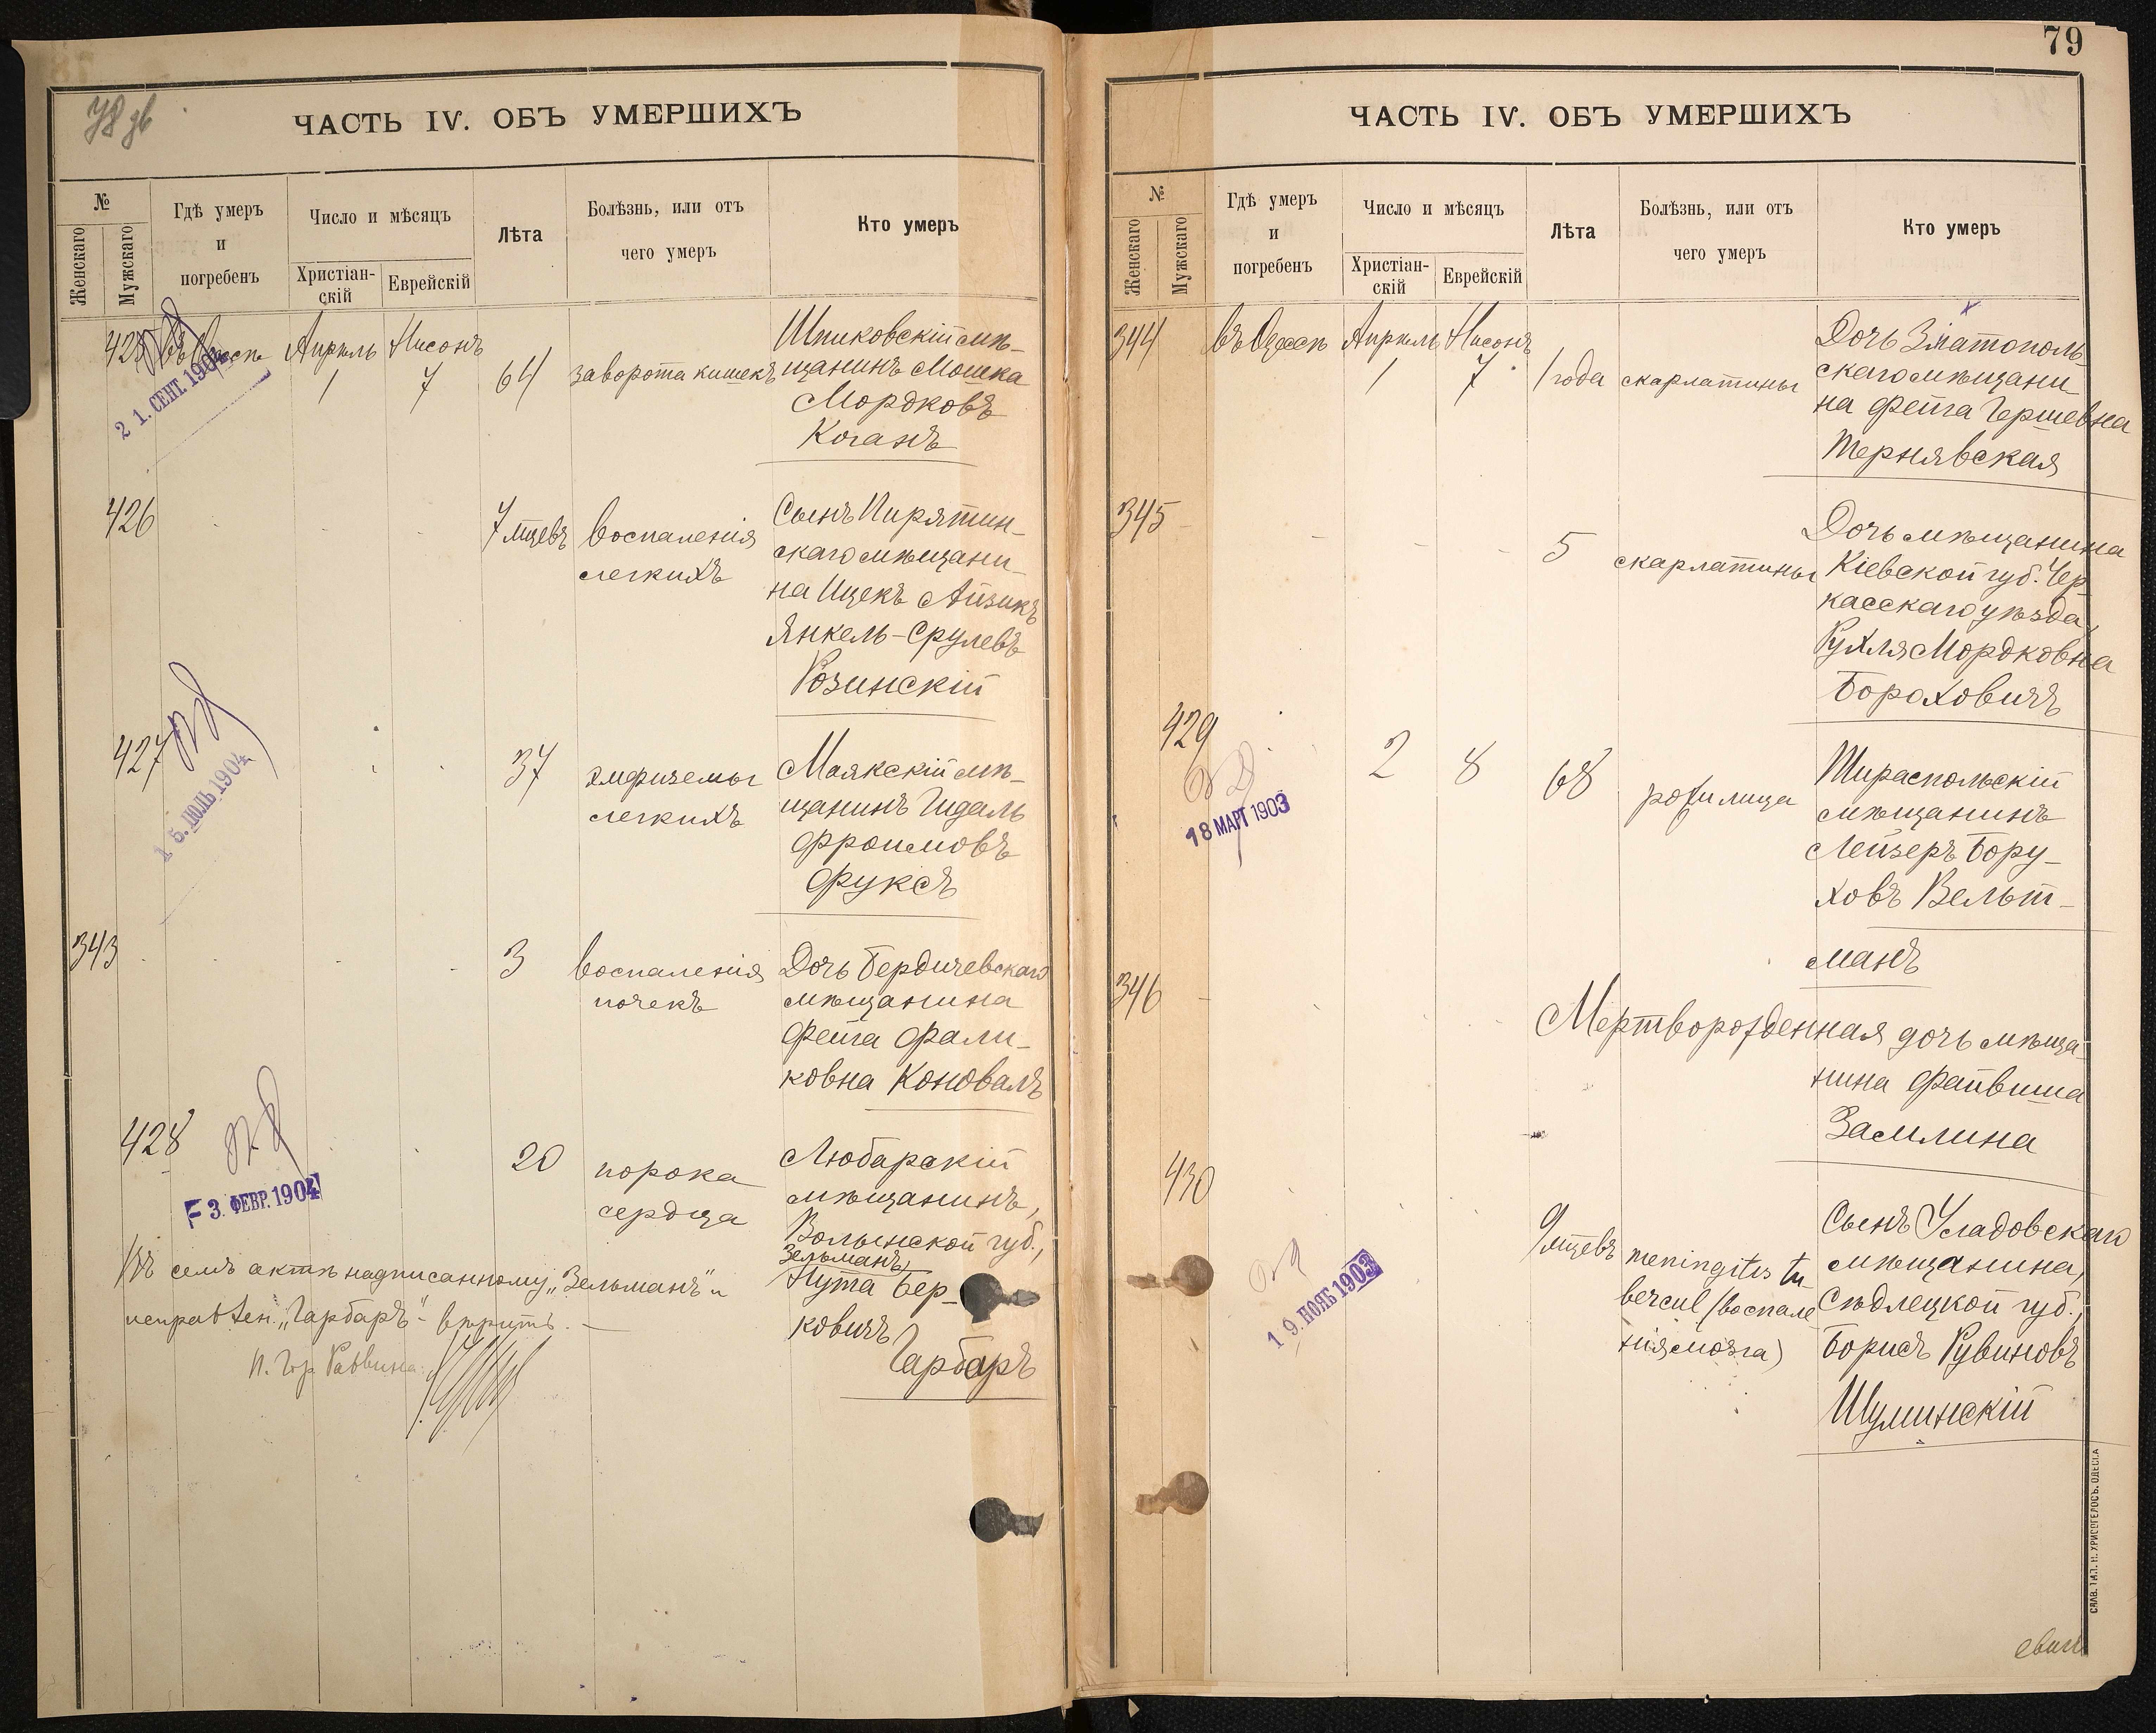 78 об
ЧАСТЬ IV. ОБЪ УМЕРШИХЪ
№
Женскаго
Мужскаго
Гдѣ умеръ
и
погребенъ
Число и мѣсяцъ
Христіан-
скій
Еврейскій
Лѣта
Болѣзнь, или отъ
чего умеръ
Кто умеръ
425
въ Одессѣ
Апрѣль
1
Нисонъ
7
64
заворота кишекъ
Шпиковскій мѣ-
щанинъ Мошка
Мордковъ
Коганъ
21. СЕНТ. 1904
426
7 мцевъ
воспаленія
легкихъ
Сынъ Пирятин-
скаго мѣщани-
на Ицекъ Айзикъ
Янкель-Срулевъ
Розинскій
427
15. ІЮЛЬ 1904
37
эмфиземы
легкихъ
Маякскій мѣ-
щанинъ Гидаль
Фроимовъ
Фуксъ
343
3
воспаленія
почекъ
Дочь Бердичевскаго
мѣщанина
Фейга Фали-
ковна Коновалъ
428
3. ФЕВР. 1904
20
порока
сердца
Любарскій
мѣщанинъ,
Волынской губ.,
Зельманъ
Нута Бер-
ковичъ
Гарбаръ
Въ семъ актѣ надписанному „Зельманъ" и
исправлен. „Гарбаръ" - вѣрить. —
И. Гор. Раввина
79
ЧАСТЬ IV. ОБЪ УМЕРШИХЪ
№
Женскаго
Мужскаго
Гдѣ умеръ
и
погребенъ
Число и мѣсяцъ
Христіан-
скій
Еврейскій
Лѣта
Болѣзнь, или отъ
чего умеръ
Кто умеръ
344
въ Одессѣ
Апрѣль
1
Нисонъ
7
1 года
скарлатины
Дочь Златополь-
скаго мѣщани-
на Фейга Гершевна
Тернявская
345
5
скарлатины
Дочь мѣщанина
Кіевской губ. Чер-
касскаго уѣзда,
Рухля Мордковна
Бороховичъ
429
18 МАРТ 1903
2
8
68
рожи лица
Тираспольскій
мѣщанинъ
Лейзеръ Бору-
ховъ Вельт-
манъ
346
Мертворожденная дочь мѣща-
нина Файвиша
Замлина
430
19. НОЯБ 1903
9 мцевъ
meningitis tu
bercul (воспале
нія мозга)
Сынъ Усладовскаго
мѣщанина,
Сѣдлецкой губ.,
Борисъ Рувиновъ
Шуминскій
СЛАВ. ТИП. Н. ХРИСОГЕЛОСЪ. ОДЕССА